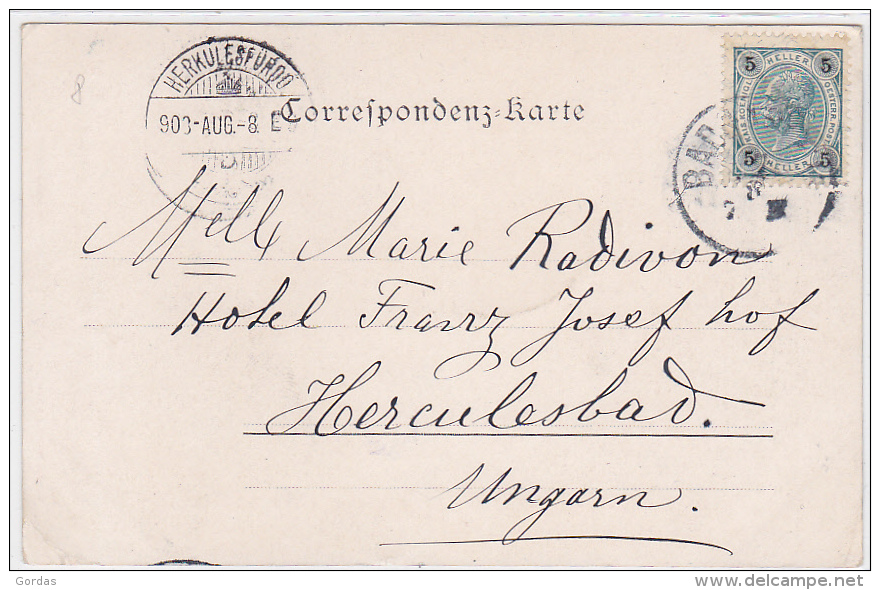 8
HERKULESFÜRDŐ
903-AUG.-8. E
Correspondenz-Karte
5 HELLER 5
KAIS. KOENIGL. OESTERR. POST
5 HELLER 5
BAD
Mell Marie Radivon
Hotel Franz Josef hof
Herculesbad.
Ungarn.
Gordas
delcampe.net